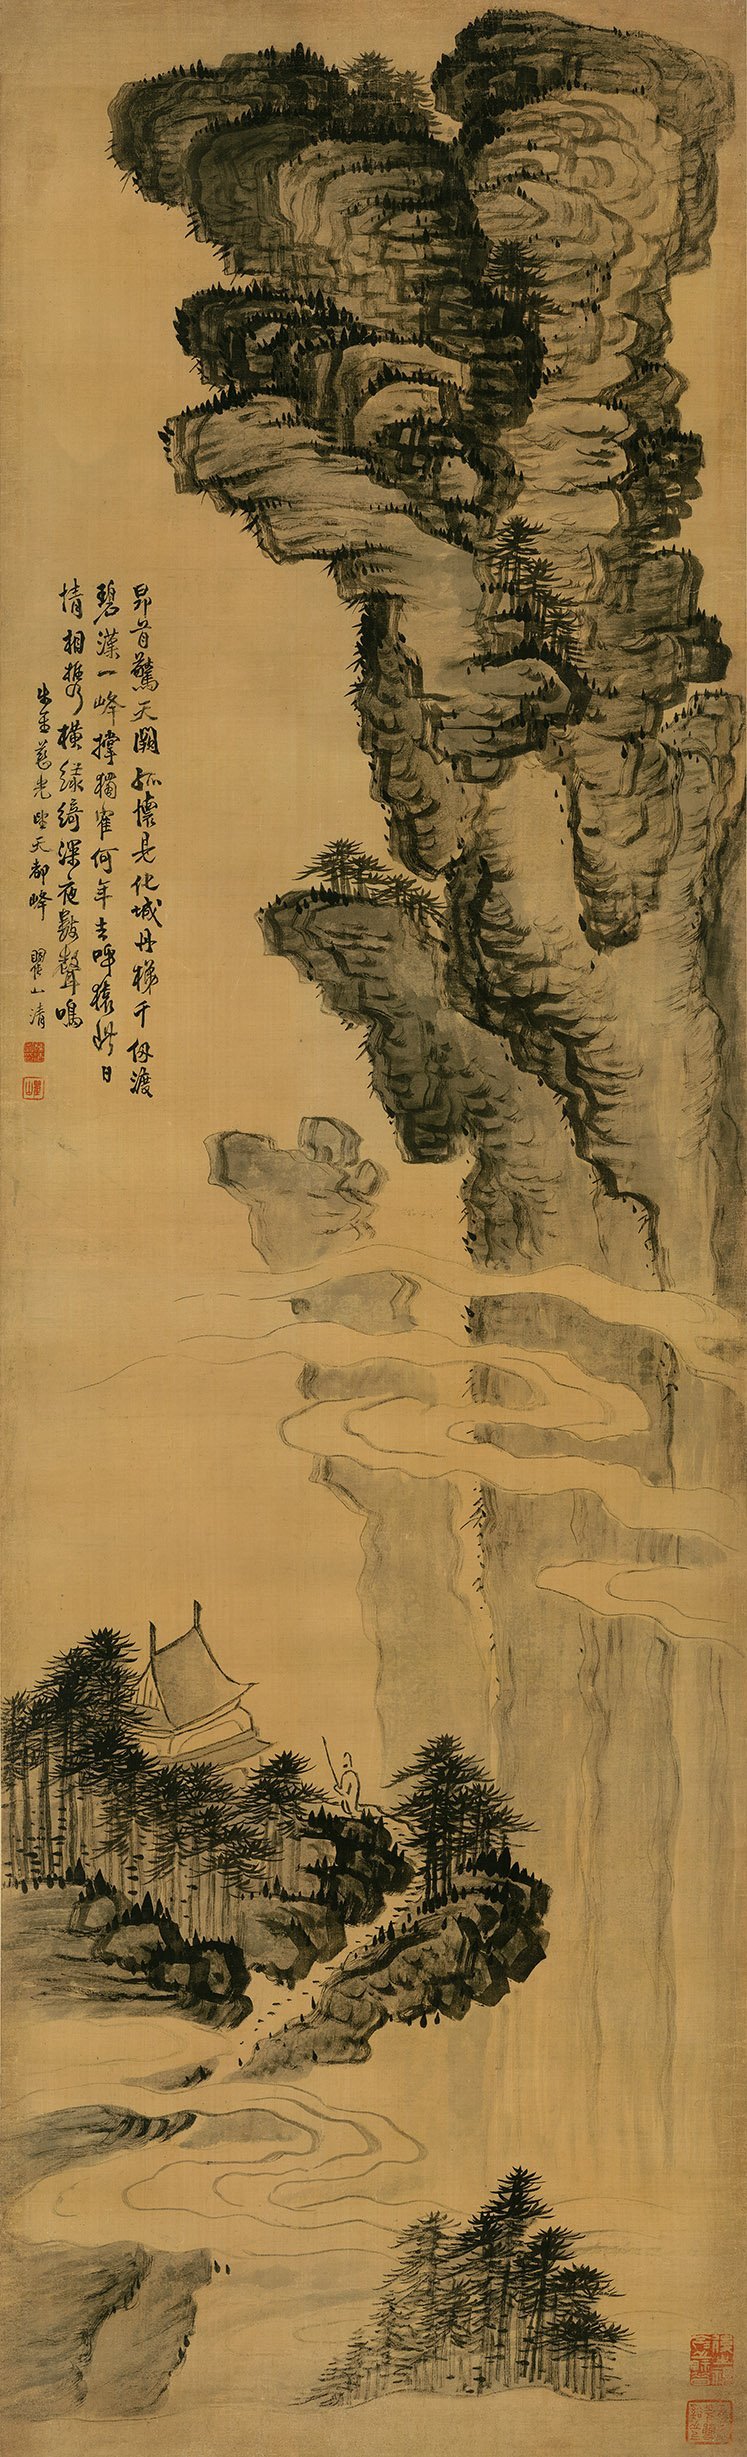 昂首驚天闕孤懷是化城丹梯千仞渡
碧漢一峰撑獨寉何年去呼猿此日
情相攜橫綠綺深夜鼓聲鳴
朱砂菴光望天都峰 瞿山清
瞿山